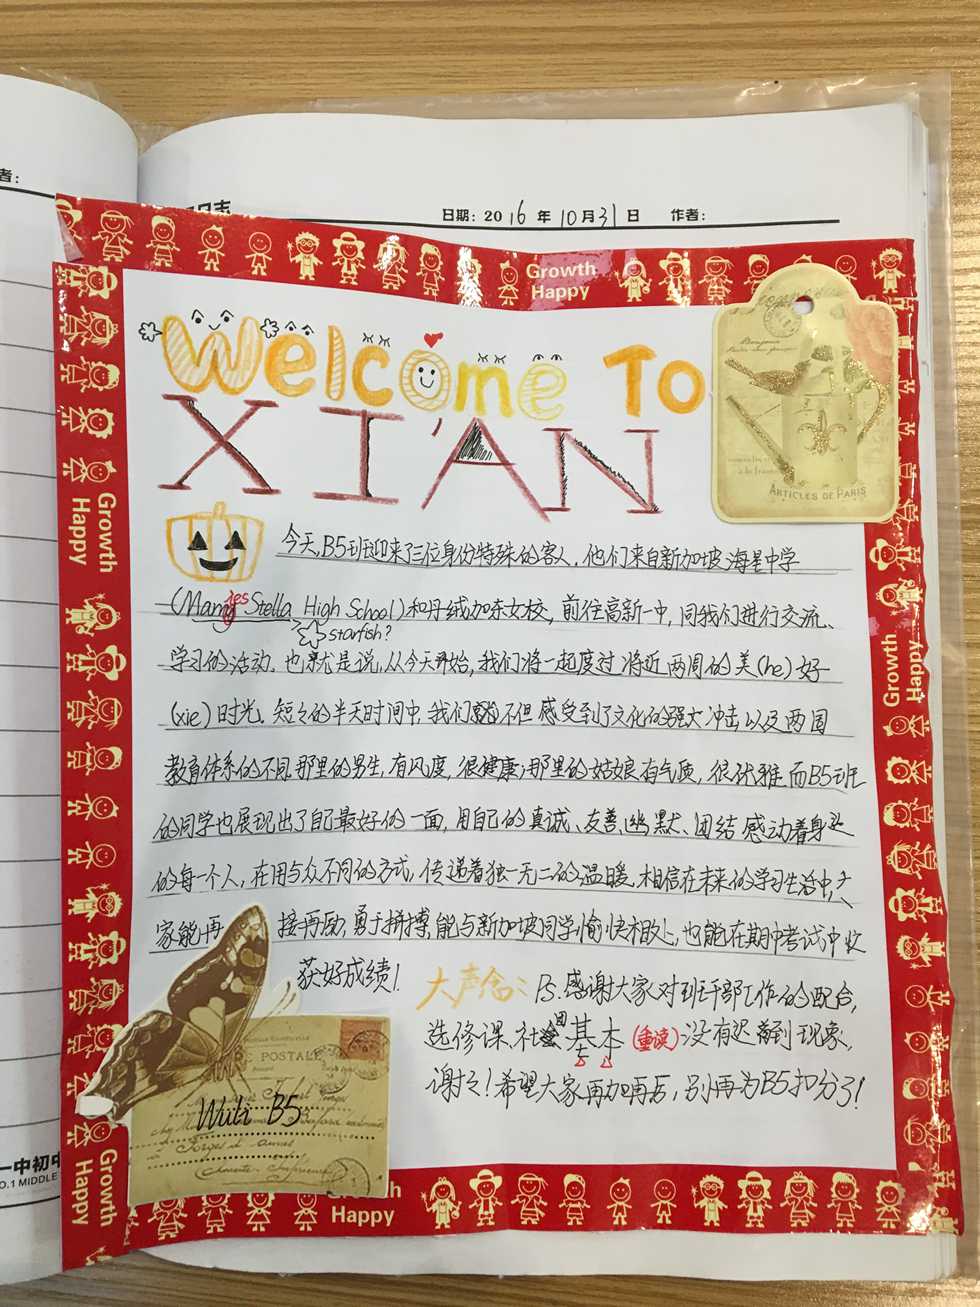 者:
日期: 2016 年 10 月 31 日 作者:
Growth Happy
Welcome To
XI'AN
ARTICLES DE PARIS
今天,B5班迎来了三位身份特殊的客人,他们来自新加坡海星中学
(Maris Stella High School)和丹绒加东女校,前往高新一中,同我们进行交流、
starfish?
学习的活动。也就是说,从今天开始,我们将一起度过将近两周的美(he)好
(xie)时光。短々的半天时间中,我们不但感受到了文化的强大冲击以及两国
教育体系的不同。那里的男生,有风度,很健康;那里的姑娘有气质,很优雅。而B5班
的同学也展现出了自己最好的一面,用自己的真诚、友善、幽默、团结感动着身边
的每一个人,在用与众不同的方式,传递着独一无二的温暖。相信在未来的学习生活中,大
家能再接再励,勇于拼搏,能与新加坡同学愉快相处,也能在期中考试中收
获好成绩!
大声念: PS.感谢大家对班干部工作的配合,
选修课、社会回基本(重读)没有迟到现象,
谢々!希望大家再加再厉,别再为B5扣分了!
POSTALE
Wuli B5
Growth Happy
Growth Happy
Growth Happy
Growth Happy
Happy
一中初中
NO.1 MIDDLE